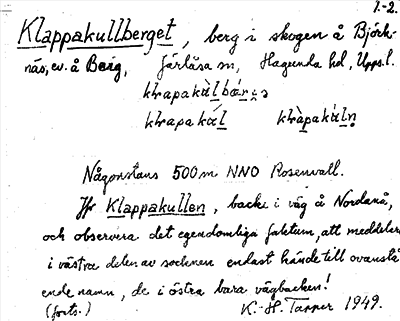 1.-2.
Klappakullberget, berg i skogen å Björk-
näs, ev. å Berg, Järlåsa sn, Hagunda hd, Upps.l.
Någonstans 500 m NNO Rosenvall.
Jfr Klappakullen, backe i väg å Nordanå,
och observera det egendomliga faktum, att meddelare
i västra delen av socknen endast kände till ovanstå-
ende namn, de i östra bara vägbacken!
(forts.) K.-H. Tapper 1949.